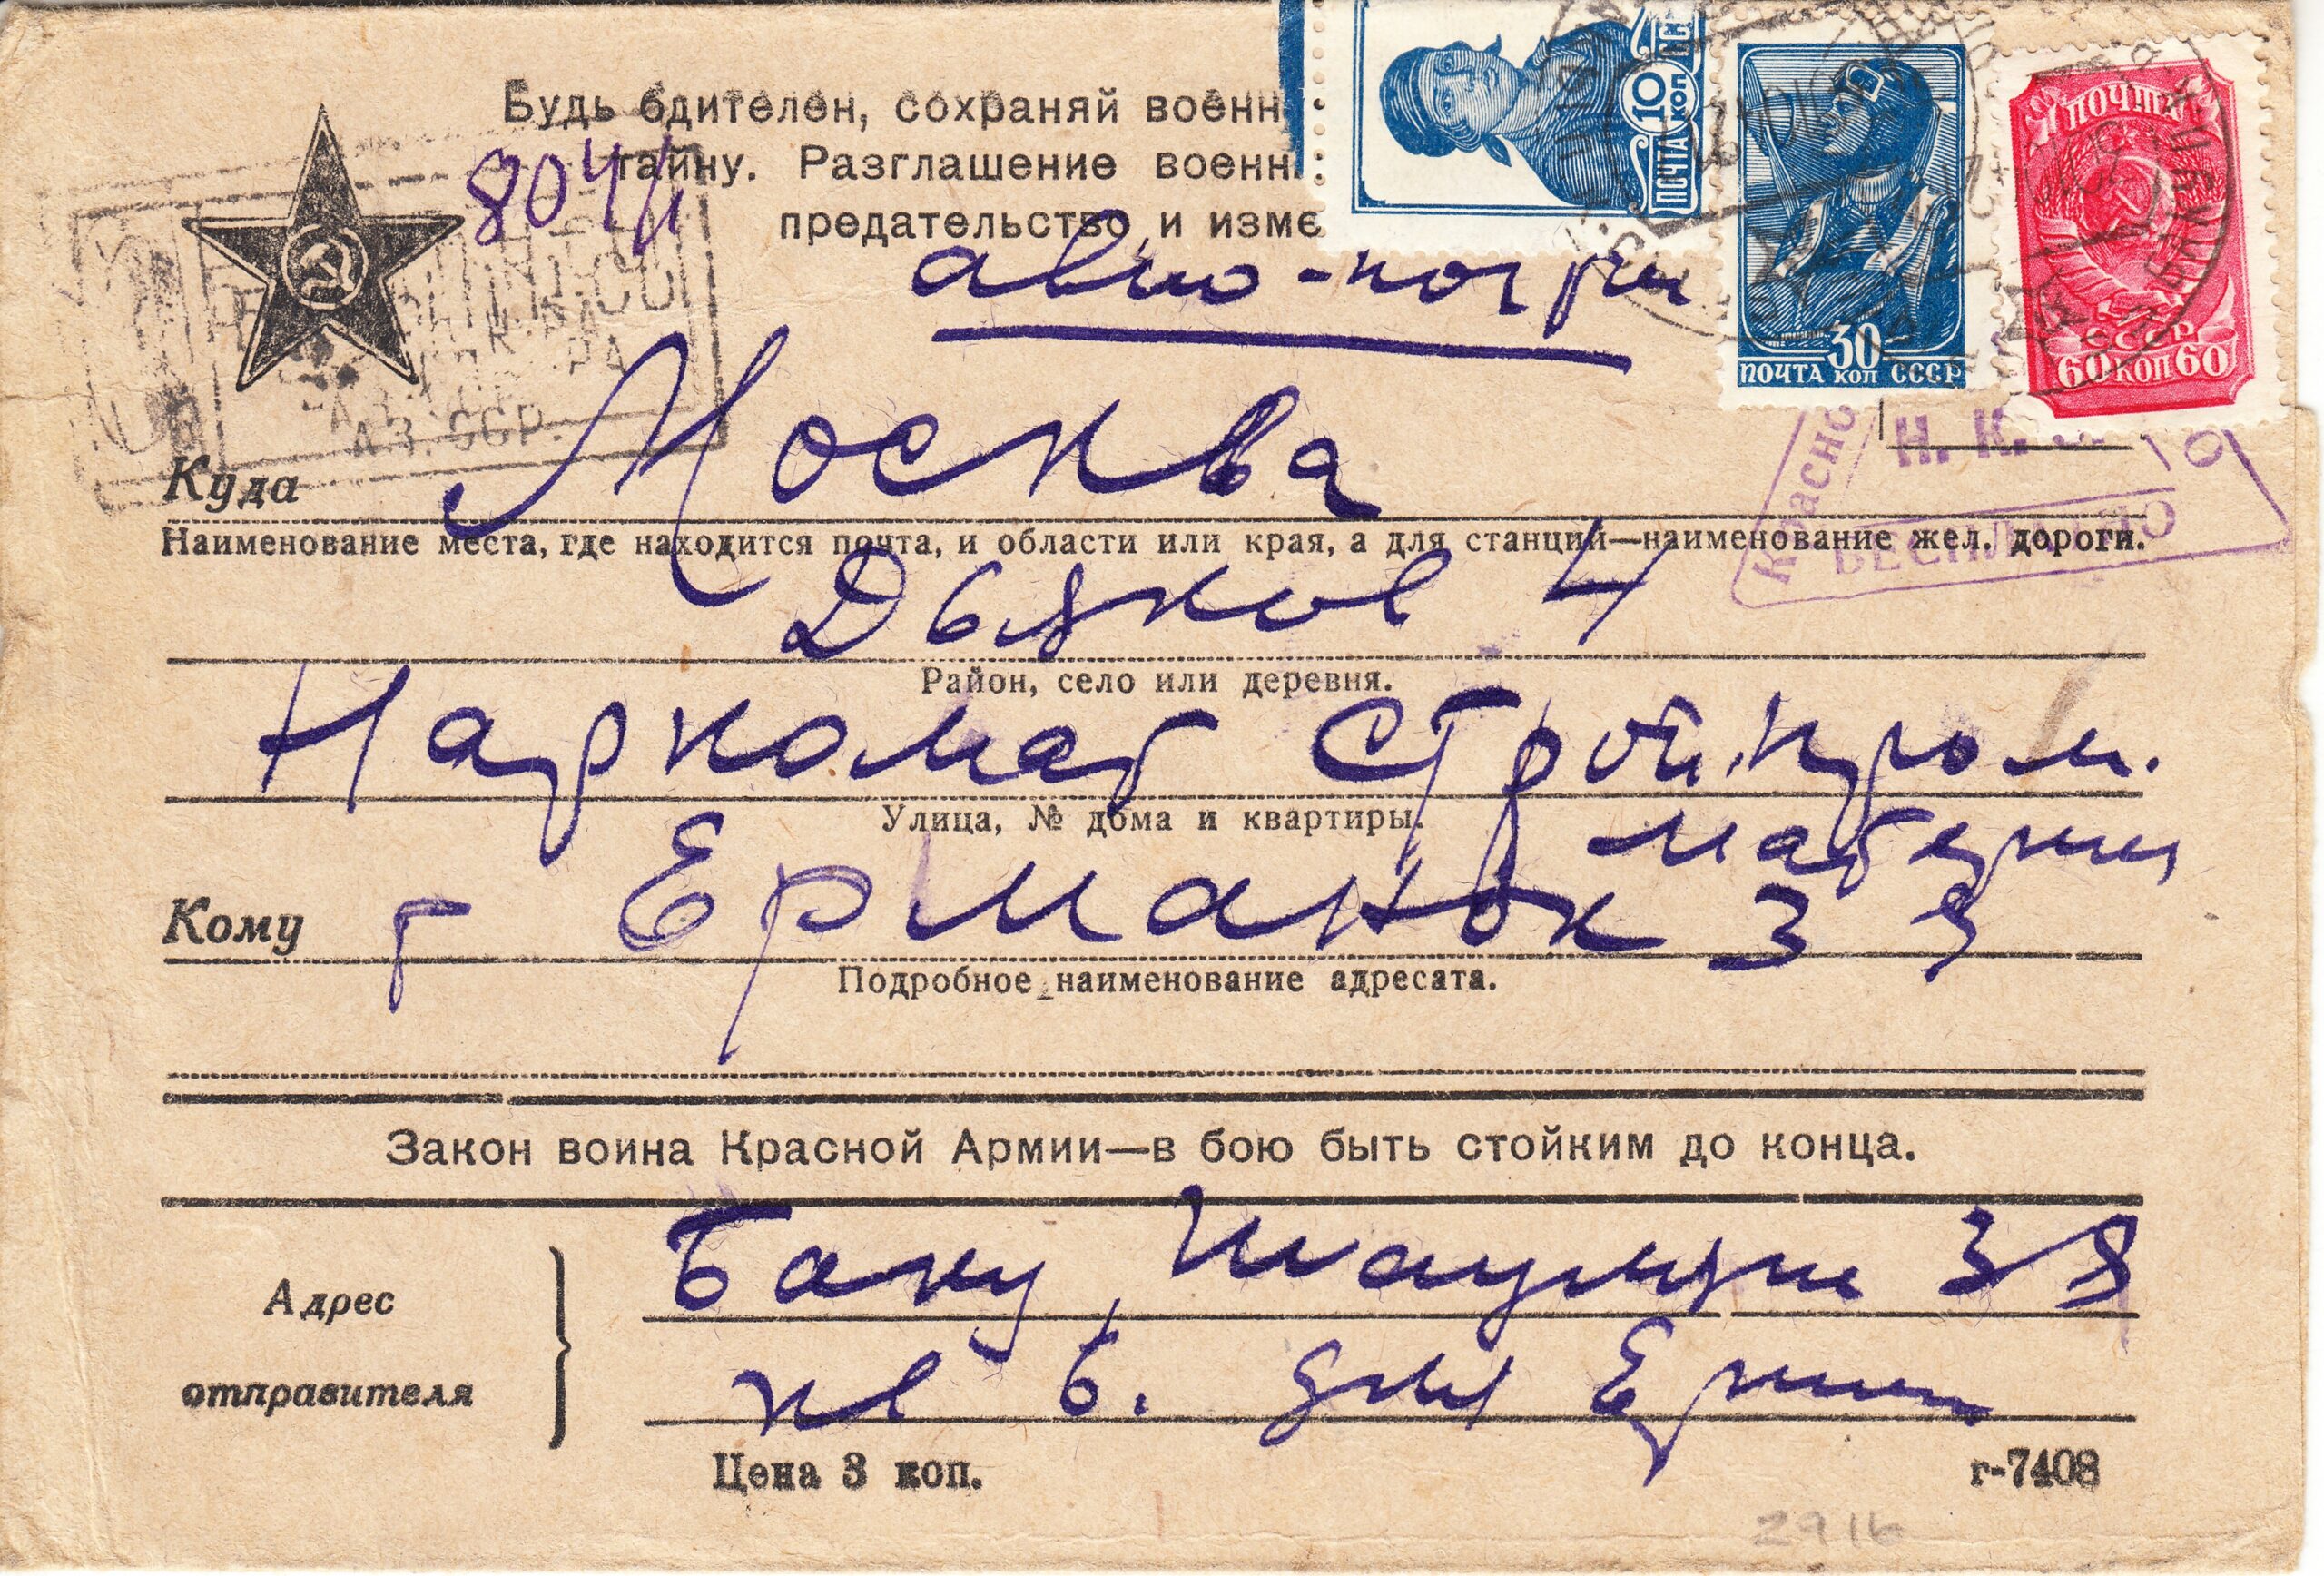 Будь бдителен, сохраняй военн
тайну. Разглашение военн
предательство и изме
ПОЧТА 10 КОП СССР
30
ПОЧТА КОП СССР
ПОЧТА
СССР
60 КОП 60
804
Аз. ССР.
Н. К.
Красно
БЕСПЛАТНО
Куда Москва
Наименование места, где находится почта, и области или края, а для станций—наименование жел. дороги.
4
Район, село или деревня.
Наркомат Стройпром.
Улица, № дома и квартиры.
Кому Ерманок
Подробное наименование адресата.
Закон воина Красной Армии—в бою быть стойким до конца.
Адрес
отправителя
Баку, Шаумяна 38
кв 6.
Цена 3 коп.
г-7408
2916